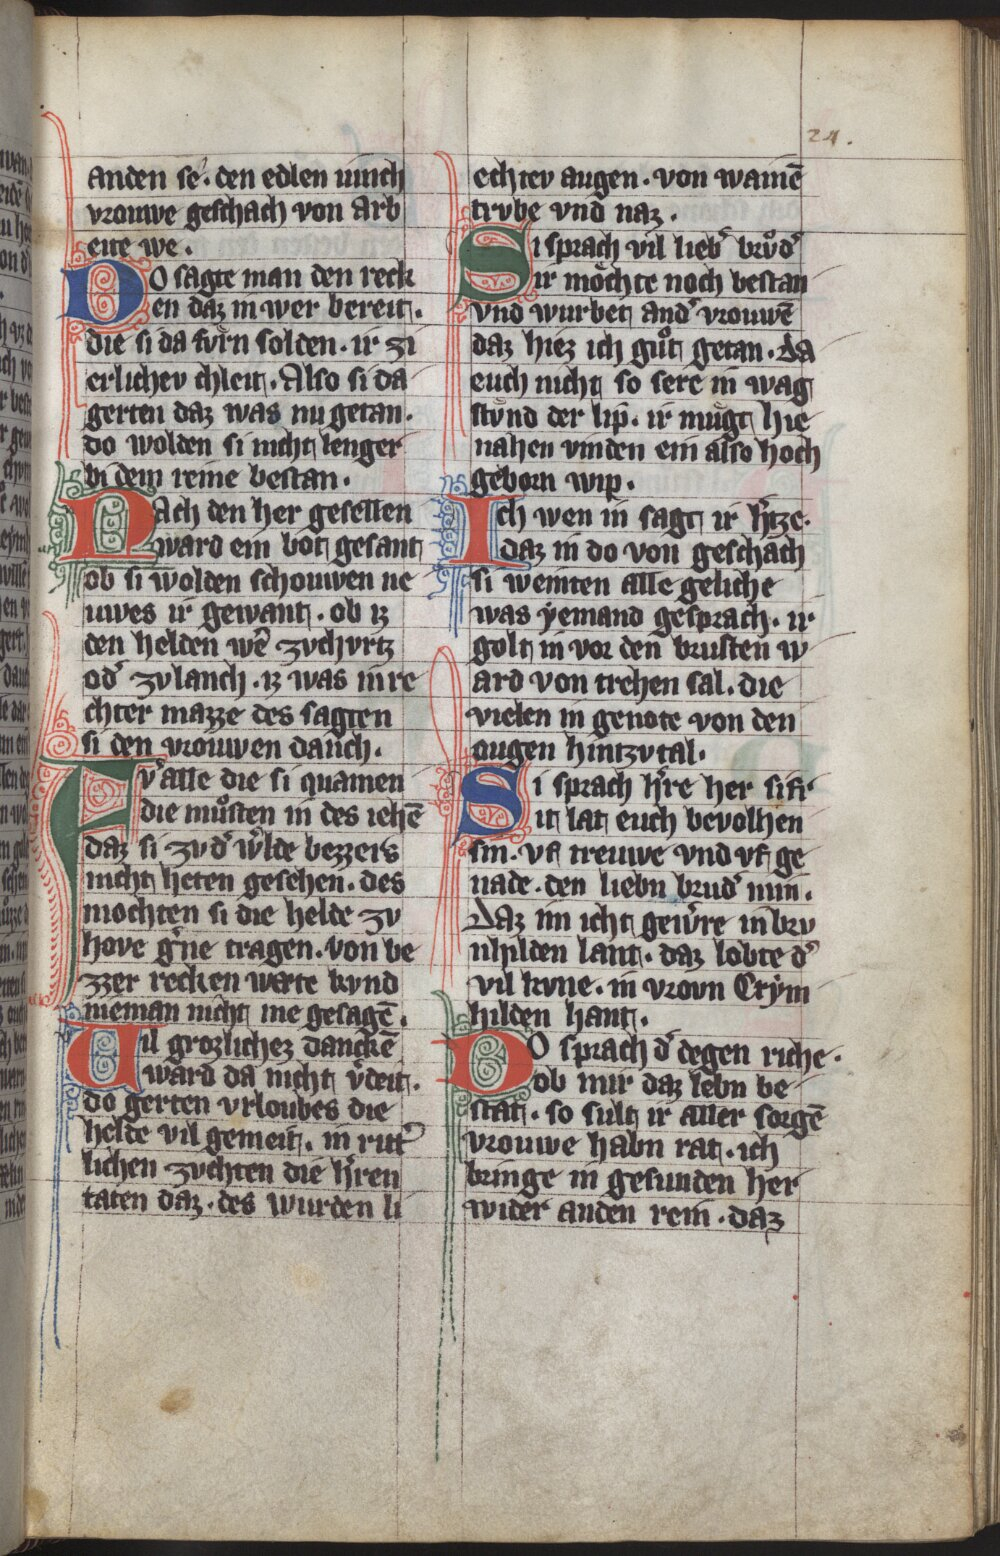 24.
anden se. den edlen iunch
vrouwe geschach von arb
eite we.
DO sagte man den reck
en daz in wer bereit.
die si da fvrn solden. ir zi
erlichev chleit. Also si da
gerten daz was nu getan.
do wolden si nicht lenger
bi dem reine bestan.
NAch den her gesellen
ward ein bot gesant
ob si wolden schouwen ne
uwes ir gewant. ob iz
den helden wē zvchvrtz
od' zvlanch. iz was in re
chter mazze des sagten
si den vrouwen danch.
Fv̓ alle die si quamen
die muͦsten in des iehē
daz si zvd' w̓lde bezzers
nicht heten gesehen. des
mochten si die helde zv
hove g̓ne tragen. von be
zzer recken werte kvnd
nieman nicht me gesagē.
Vil grozlichez danckē
ward da nicht v̓deit.
do gerten vrloubes die
helde vil gemeit. in ritt'
lichen zvchten die h̓ren
taten daz. des wurden li
echtev augen. von wainē
trvbe vnd naz.
SI sprach vil lieb' bruͦd'
ir moͤchte noch bestan
vnd wurbet and' vrouwē
daz hiez ich guͦt getan. Da
euch nicht so sere in wag
stvnd der lip. ir muͤgt hie
nahen vinden ein also hoch
geborn wip.
Ich wen in sagt ir h̓tze.
daz in do von geschach
si weinten alle geliche
was yemand gesprach. ir
golt in vor den brusten w
ard von trehen sal. die
vielen in genote von den
ougen hintzvtal.
SI sprach h̓re her sifr
it lat euch bevolhen
sin. vf treuwe vnd vf ge
nade. den liebn brud' min.
Daz im icht gew̓re in brv
nhilden lant. daz lobte d'
vil kvne. in vrovn Crym
hilden hant.
DO sprach d' degen riche.
ob mir daz lebn be
stat. so sult ir aller sorgē
vrouwe habn rat. ich
bringe in gesunden her
wider anden rein. daz